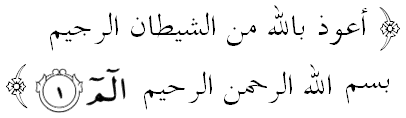 ﴿ أعوذ بالله من الشيطان الرجيم
بسم الله الرحمن الرحيم الٓمٓ ١ ﴾